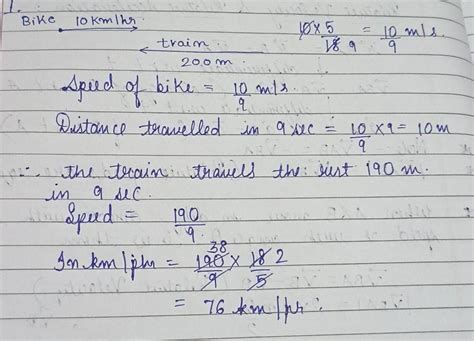 1.
Bike 10km/hr
10 × 5 / 18 9 = 10/9 m/s
train
200m
Speed of bike = 10/9 m/s
Distance travelled in 9 sec = 10/9 × 9 = 10m
∴ the train travels the rest 190 m.
in 9 sec.
Speed = 190/9.
38
In km/phr = 190/9 × 18/5 2
= 76 km/hr.